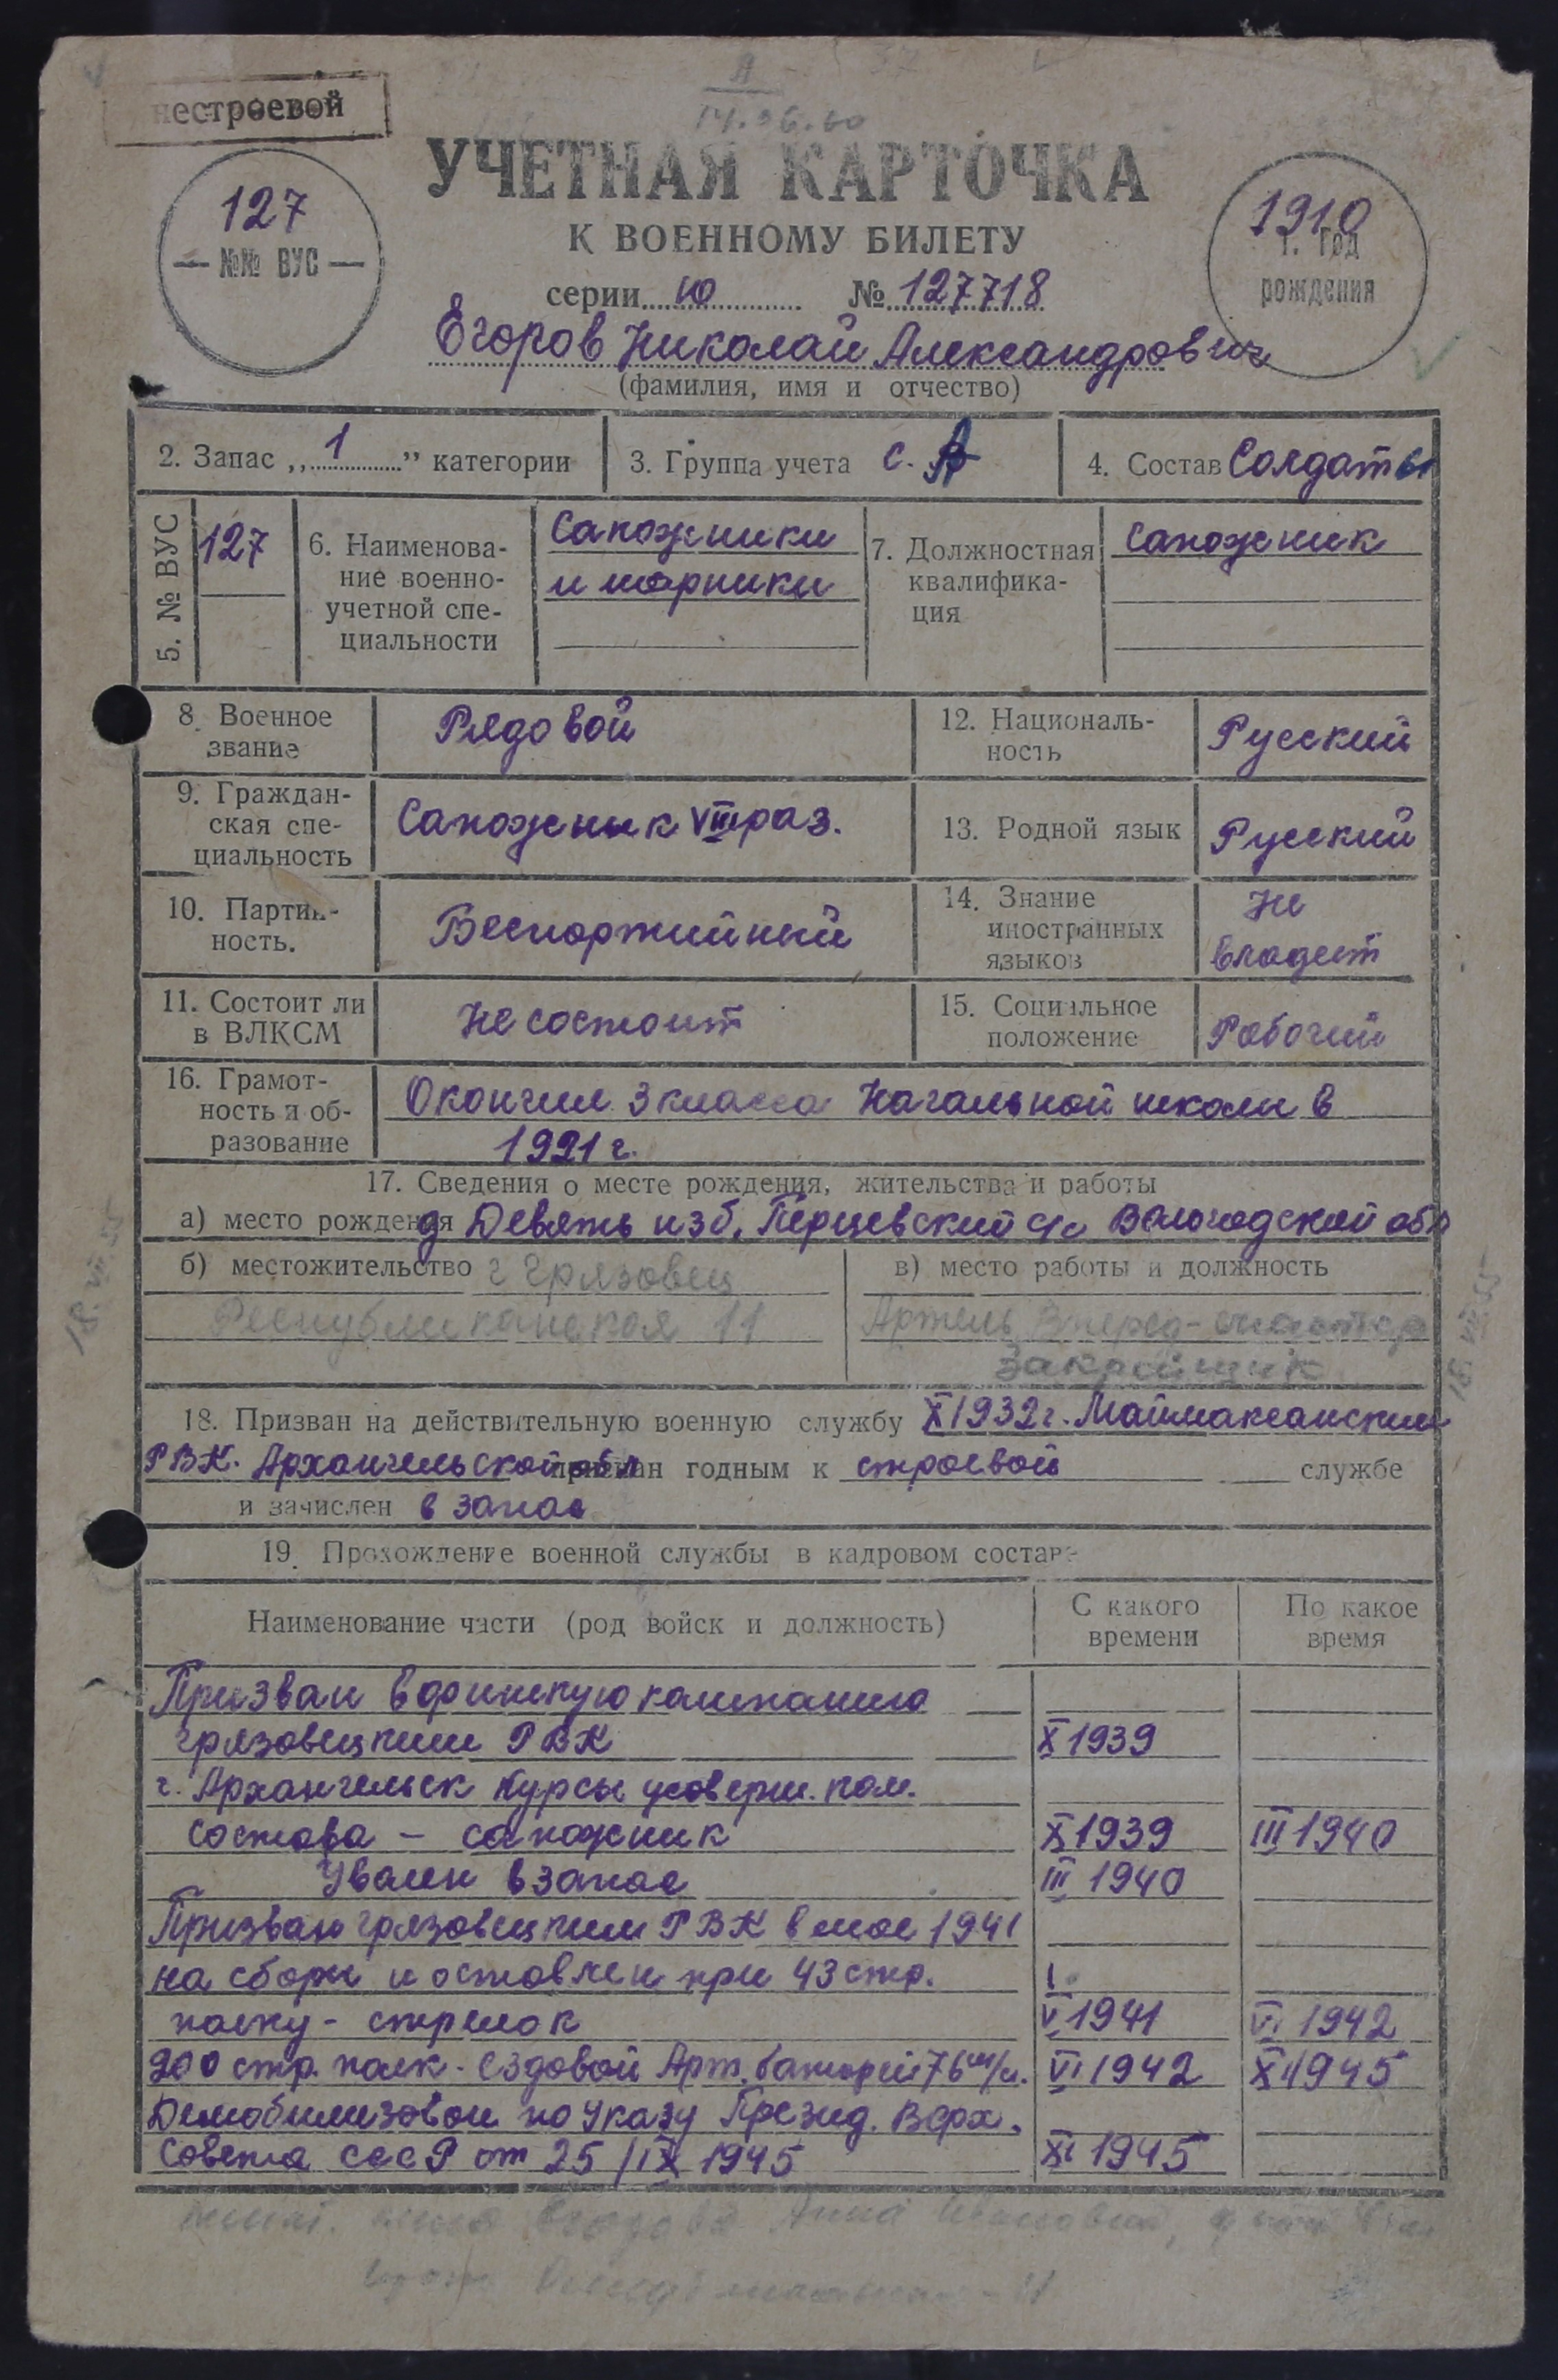 нестроевой
14.06.60
УЧЕТНАЯ КАРТОЧКА
К ВОЕННОМУ БИЛЕТУ
127
— №№ ВУС —
1910
г. год
рождения
серии ю № 127718
Егоров Николай Александрович
(фамилия, имя и отчество)
2. Запас „ 1 " категории
3. Группа учета С. А
4. Состав Солдаты
5. № ВУС
127
6. Наименова-
ние военно-
учетной спе-
циальности
Сапожники
и шорники
7. Должностная
квалифика-
ция
Сапожник
8. Военное
звание
Рядовой
12. Националь-
ность
Русский
9. Граждан-
ская спе-
циальность
Сапожник VIII раз.
13. Родной язык
Русский
10. Партий-
ность.
Беспартийный
14. Знание
иностранных
языков
Не
владеет
11. Состоит ли
в ВЛКСМ
Не состоит
15. Социальное
положение
Рабочий
16. Грамот-
ность и об-
разование
Окончил 3 класса Начальной школы в
1921 г.
17. Сведения о месте рождения, жительства и работы
а) место рождения д Девять изб, Перцевский с/с Вологодской обл
б) местожительство г Грязовец
Республиканская 11
в) место работы и должность
Артель Вперед
Закройщик
18. Призван на действительную военную службу X 1932 г. Маймаксанским
РВК. Архангельской обл признан годным к строевой службе
и зачислен в запас
19. Прохождение военной службы в кадровом составе
Наименование части (род войск и должность)
С какого
времени
По какое
время
Призван в финскую кампанию
Грязовецким РВК X 1939
г. Архангельск Курсы усоверш. ком.
состава — сапожник X 1939 III 1940
Уволен в запас III 1940
Призван Грязовецким РВК в мае 1941
на сборы и оставлен при 43 стр.
полку - стрелок V 1941 VI 1942
200 стр. полк - ездовой Арт. батареи 76 м/м. VI 1942 XI 1945
Демобилизован по Указу Презид. Верх.
Совета СССР от 25/IX 1945 XI 1945
18. VII 55
18. VII 55
Анна Ивановна,